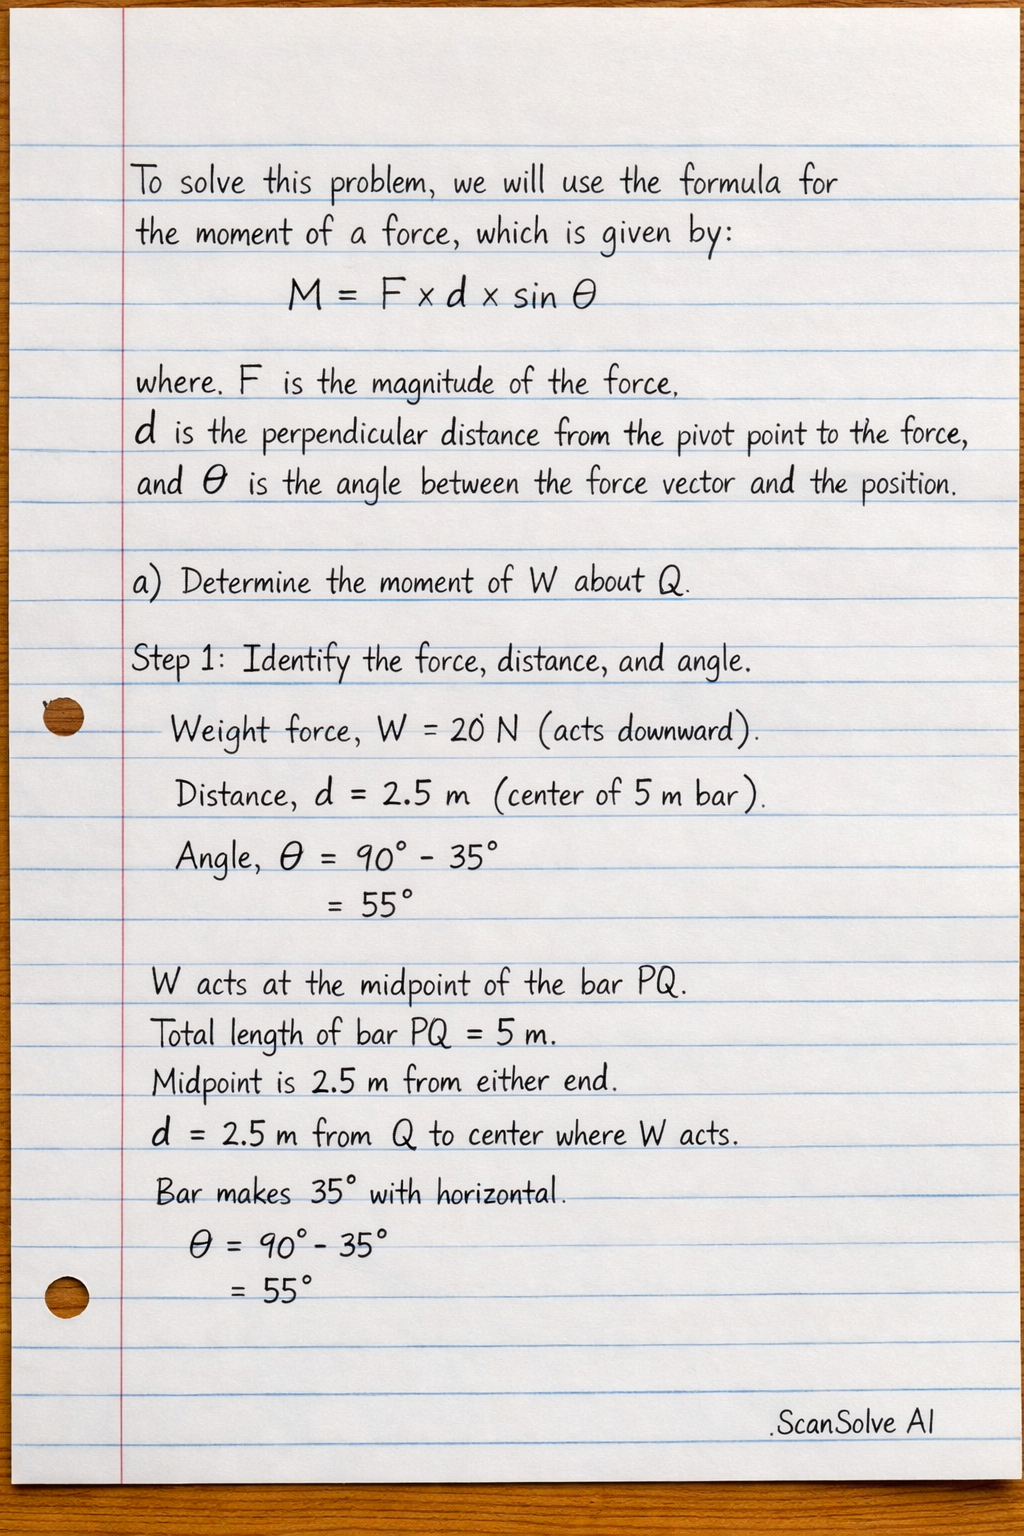 To solve this problem, we will use the formula for
the moment of a force, which is given by:
M = F × d × sin θ
where. F is the magnitude of the force,
d is the perpendicular distance from the pivot point to the force,
and θ is the angle between the force vector and the position.
a) Determine the moment of W about Q.
Step 1: Identify the force, distance, and angle.
Weight force, W = 20 N (acts downward).
Distance, d = 2.5 m (center of 5 m bar).
Angle, θ = 90° - 35°
= 55°
W acts at the midpoint of the bar PQ.
Total length of bar PQ = 5 m.
Midpoint is 2.5 m from either end.
d = 2.5 m from Q to center where W acts.
Bar makes 35° with horizontal.
θ = 90° - 35°
= 55°
.ScanSolve AI